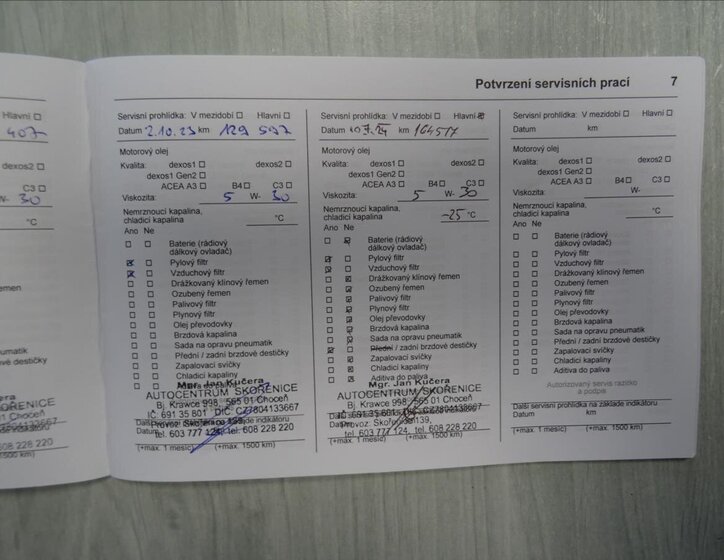 Potvrzení servisních prací 7
Hlavní
407
dexos2
C3
W- 30
°C
řemen
neumatik
destičky
Servisní prohlídka: V mezidobí Hlavní
Datum 2.10.23 km 129 597
Motorový olej
Kvalita: dexos1 dexos2
dexos1 Gen2
ACEA A3 B4 C3
Viskozita: 5 W- 30
Nemrznoucí kapalina,
chladicí kapalina °C
Ano Ne
Baterie (rádiový
dálkový ovladač)
Pylový filtr
Vzduchový filtr
Drážkovaný klínový řemen
Ozubený řemen
Palivový filtr
Plynový filtr
Olej převodovky
Brzdová kapalina
Sada na opravu pneumatik
Přední / zadní brzdové destičky
Zapalovací svíčky
Chladicí kapaliny
Mgr. Jan Kučera
AUTOCENTRUM SKOŘENICE
Bj. Krawce 998, 565 01 Choceň
IČ: 691 35 801 DIČ: CZ7804133667
Datum
tel. 603 777 124, tel. 608 228 220
(+max. 1 měsíc) (+max. 1500 km)
Servisní prohlídka: V mezidobí Hlavní
Datum km 164517
Motorový olej
Kvalita: dexos1 dexos2
dexos1 Gen2
ACEA A3 B4 C3
Viskozita: 5 W- 30
Nemrznoucí kapalina,
chladicí kapalina -25 °C
Ano Ne
Baterie (rádiový
dálkový ovladač)
Pylový filtr
Vzduchový filtr
Drážkovaný klínový řemen
Ozubený řemen
Palivový filtr
Plynový filtr
Olej převodovky
Brzdová kapalina
Sada na opravu pneumatik
Přední / zadní brzdové destičky
Zapalovací svíčky
Chladicí kapaliny
Aditiva do paliva
Mgr. Jan Kučera
AUTOCENTRUM SKOŘENICE
Bj. Krawce 998, 565 01 Choceň
IČ: 691 35 801 DIČ: CZ7804133667
Provoz: Skořenice 139,
tel. 603 777 124, tel. 608 228 220
(+max. 1 měsíc) (+max. 1500 km)
Servisní prohlídka: V mezidobí Hlavní
Datum km
Motorový olej
Kvalita: dexos1 dexos2
dexos1 Gen2
ACEA A3 B4 C3
Viskozita: W-
Nemrznoucí kapalina,
chladicí kapalina °C
Ano Ne
Baterie (rádiový
dálkový ovladač)
Pylový filtr
Vzduchový filtr
Drážkovaný klínový řemen
Ozubený řemen
Palivový filtr
Plynový filtr
Olej převodovky
Brzdová kapalina
Sada na opravu pneumatik
Přední / zadní brzdové destičky
Zapalovací svíčky
Chladicí kapaliny
Aditiva do paliva
Autorizovaný servis razítko
a podpis
Další servisní prohlídka na základě indikátoru
Datum km
(+max. 1 měsíc) (+max. 1500 km)